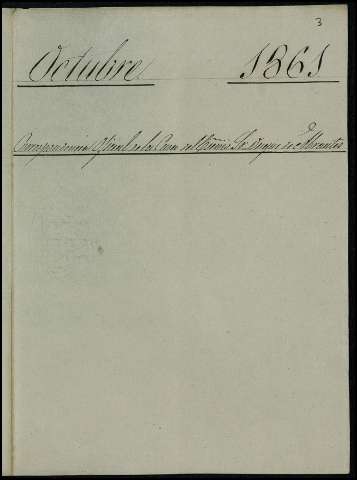 3
Octubre 1861
Correspondencia Oficial de la Casa del Exmo. Sr. Duque de Abrantes